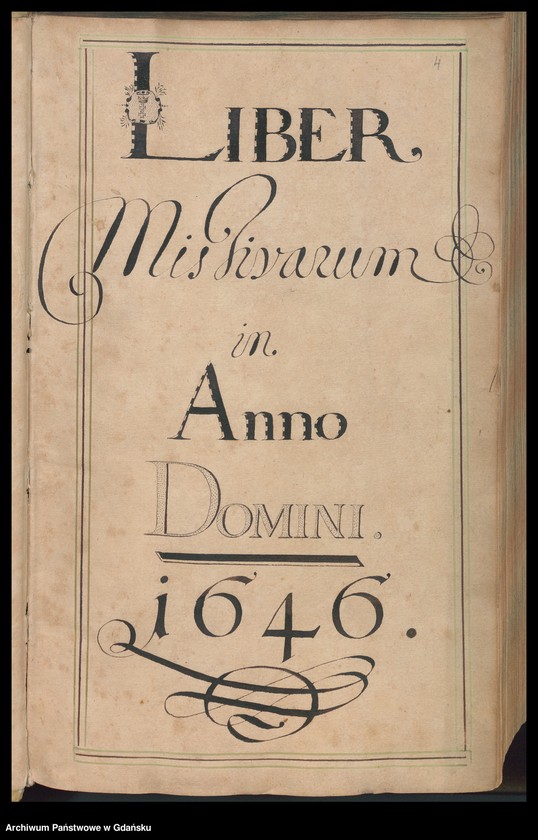 4
LIBER.
Missivarum
in.
Anno
DOMINI.
1646.
Archiwum Państwowe w Gdańsku